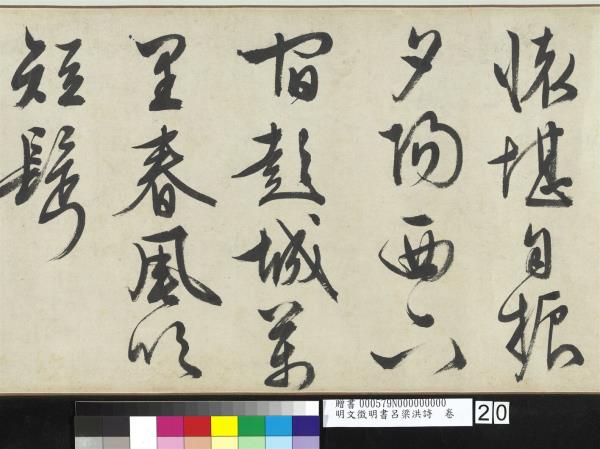 懷堪自振
夕陽西下
彭城萬
里春風吹
短髩
贈書 000579N000000000
明文徵明書呂梁洪詩 卷
20